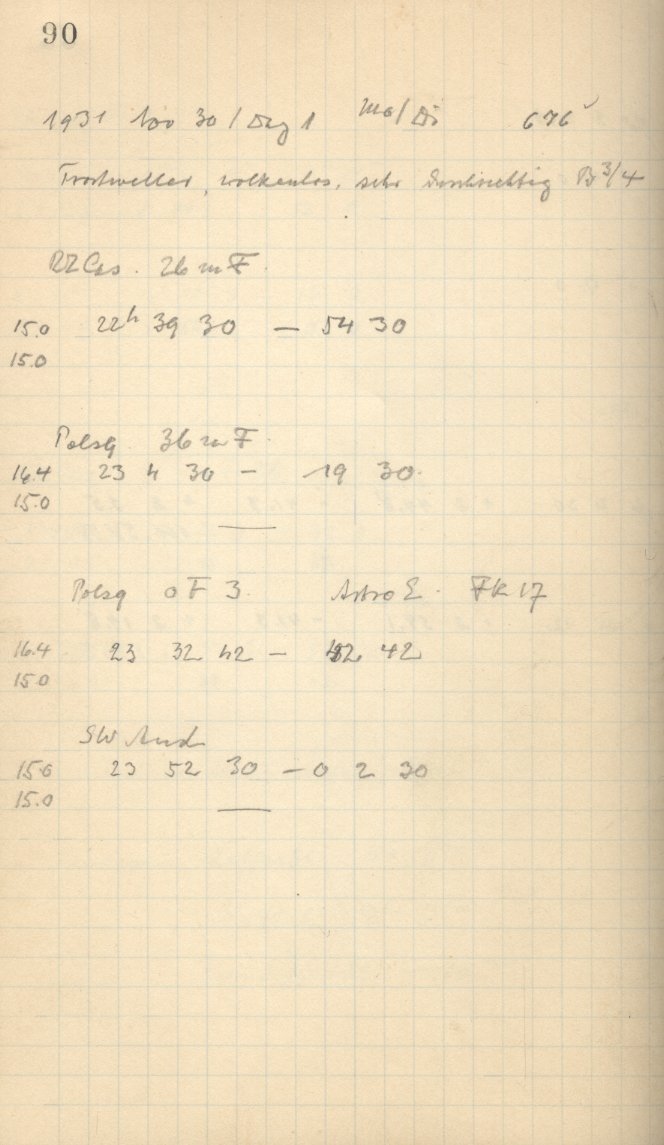 90
1931 Nov 30 / Dez 1 Mo/Di 676
Frostwetter, wolkenlos, sehr durchsichtig B 3/4
RZ Cas. 26 m F.
15.0 22h 39 30 — 54 30
15.0
Polsq 36 m F.
16.4 23 4 30 — 19 30.
15.0
Polsq o F 3. Astro E. FK 17
16.4 23 32 42 — 42 42
15.0
SW And
15.0 23 52 30 — 0 2 30
15.0